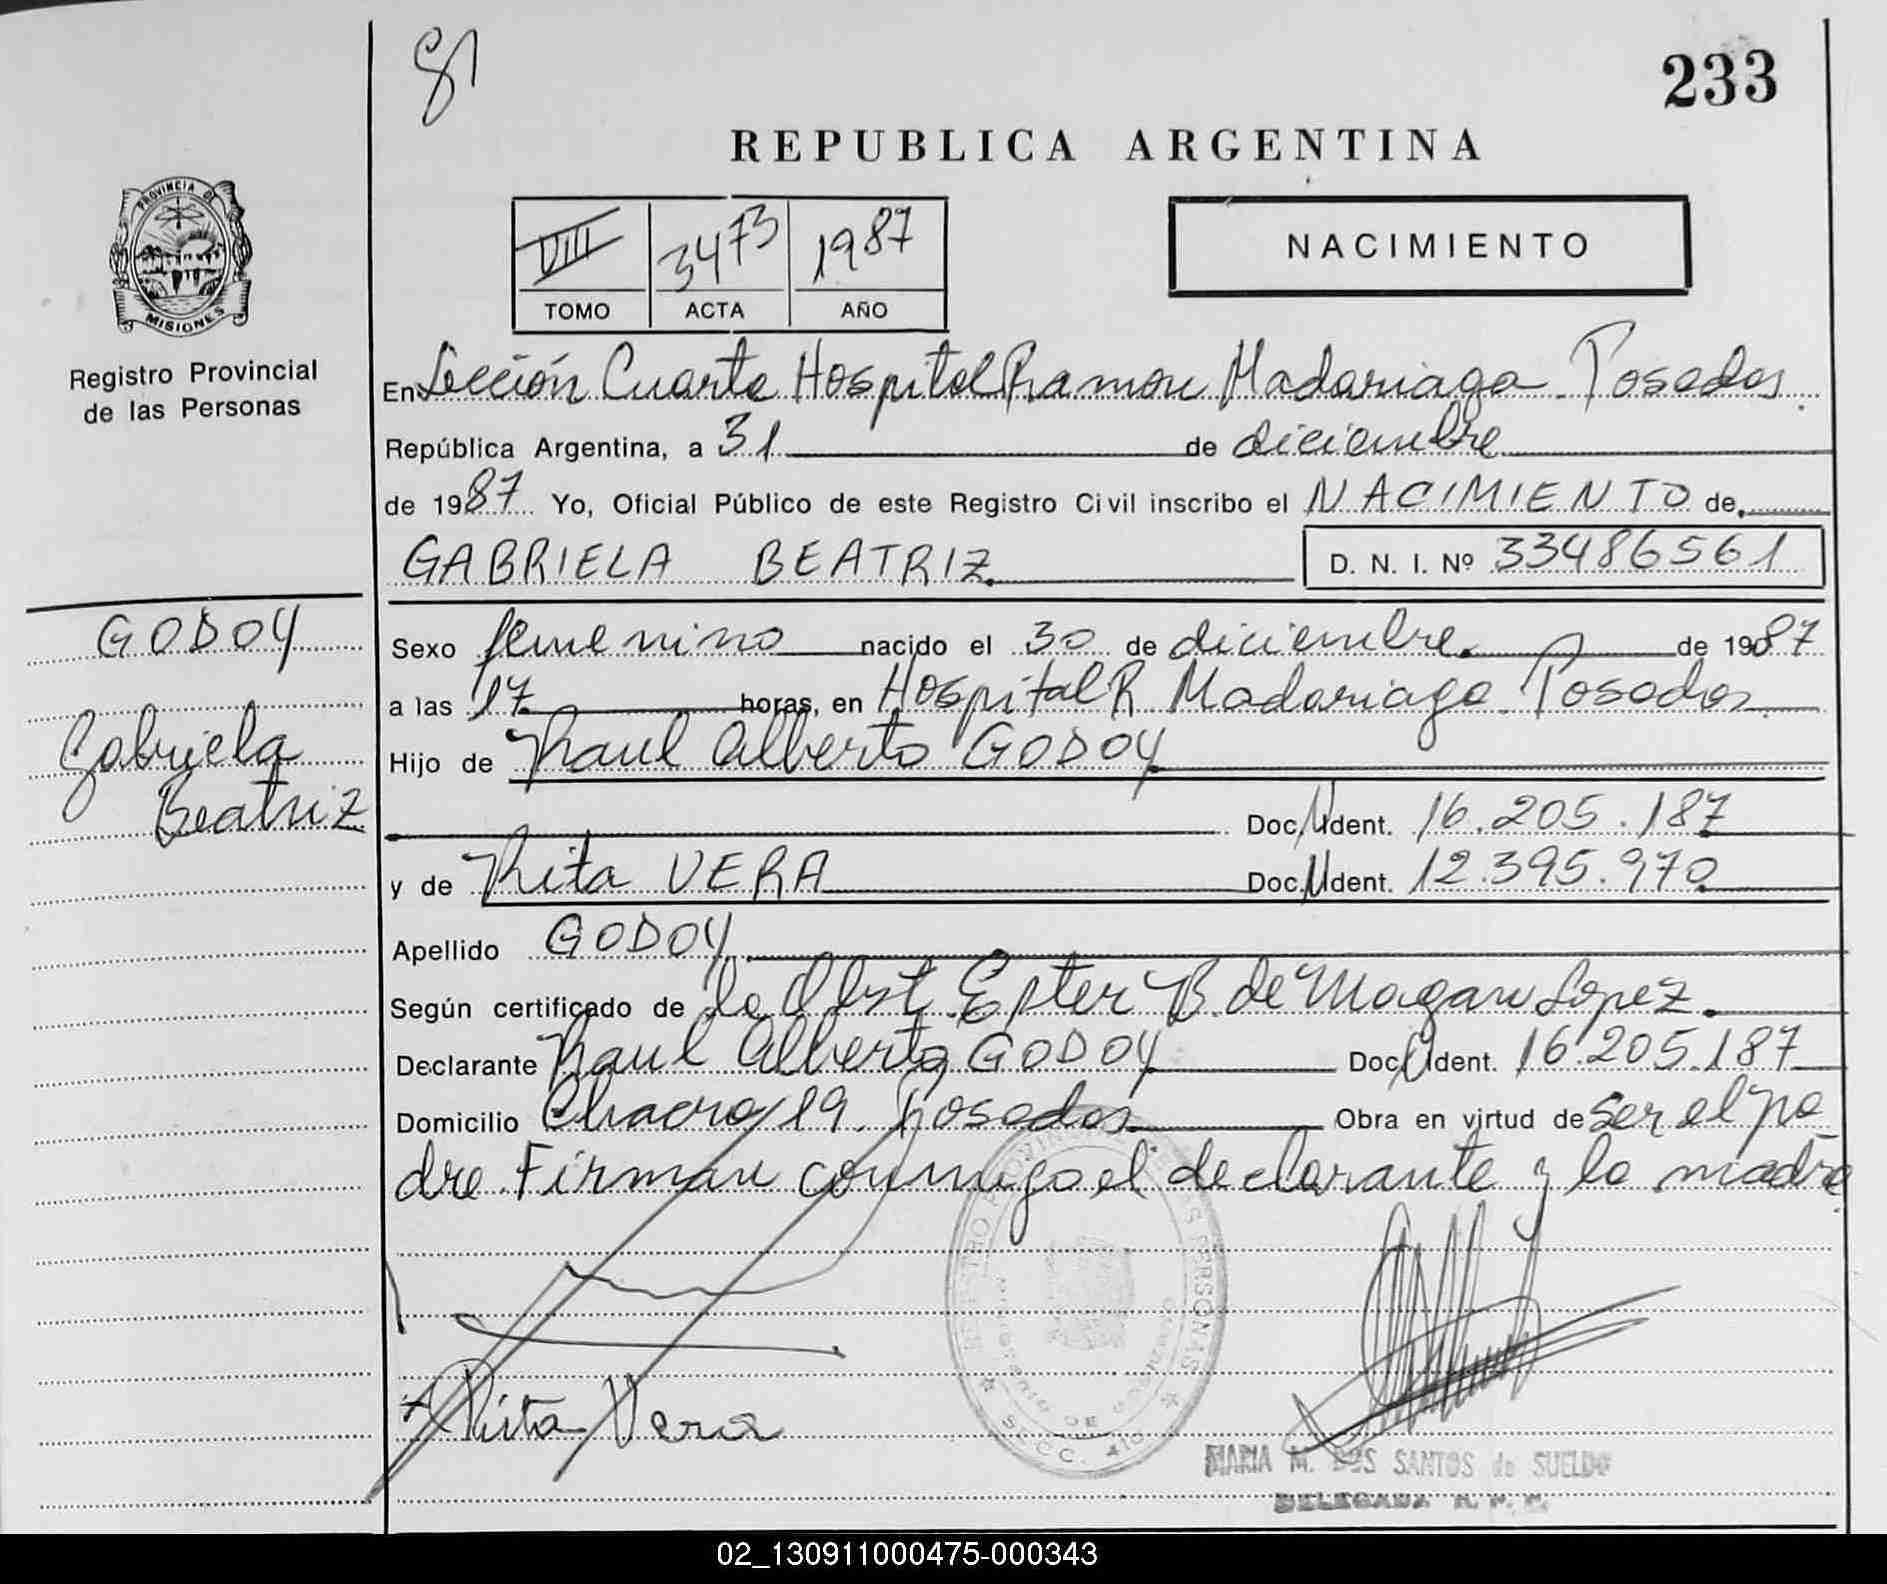 81
233
REPUBLICA ARGENTINA
PROVINCIA DE
MISIONES
Registro Provincial
de las Personas
VIII 3473 1987
TOMO ACTA AÑO
NACIMIENTO
En Sección Cuarta Hospital Ramon Madariaga - Posadas
República Argentina, a 31 de diciembre
de 1987 Yo, Oficial Público de este Registro Civil inscribo el NACIMIENTO de
GABRIELA BEATRIZ D. N. I. Nº 33486561
GODOY
Gabriela
Beatriz
Sexo femenino nacido el 30 de diciembre de 1987
a las 17 horas, en Hospital R. Madariaga - Posadas
Hijo de Raul Alberto GODOY
Doc. Ident. 16.205.187
y de Rita VERA Doc. Ident. 12.395.970
Apellido GODOY
Según certificado de la Obst. Ester B. de Magan Lopez.
Declarante Raul Alberto GODOY Doc. Ident. 16.205.187
Domicilio Chacra 19. Posadas Obra en virtud de ser el pa
dre. Firman conmigo el declarante y la madre
Rita Vera
REGISTRO PROVINCIAL DE LAS PERSONAS
SECC. 4ta
MARIA M. DOS SANTOS de SUELDO
DELEGADA
02_130911000475-000343